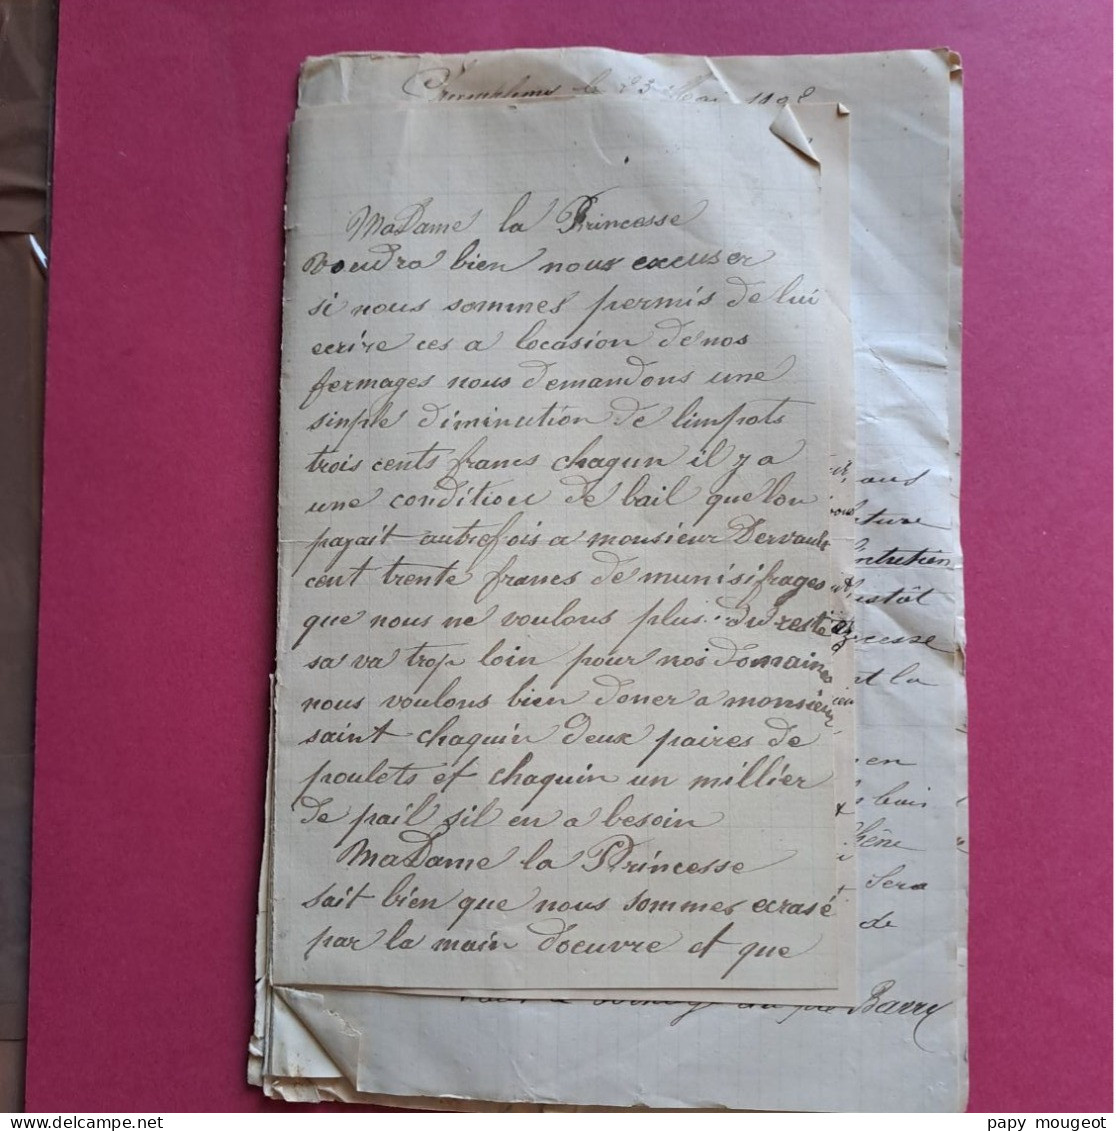 le 23 Mai 1898
MaDame la Princesse
voudra bien nous excuser
si nous sommes permis de lui
ecrire ces a locasion de nos
fermages nous demandons une
sinple diminution de limpots
trois cents francs chaqun il y a
une condition de bail quelon
payait autrefois a monsieur Dervault
cent trente francs de munisifrages
que nous ne voulons plus. du reste
sa va trop loin pour nos domaines
nous voulons bien doner a monsieur
saint chaquin deux paires de
poulets et chaquin un millier
de pail sil en a besoin
MaDame la Princesse
sait bien que nous sommes ecrasé
par la main doeuvre et que
ans
lintretien
bientôt
la
en
bois
chêne
sera
de
Barry
papy mougeot